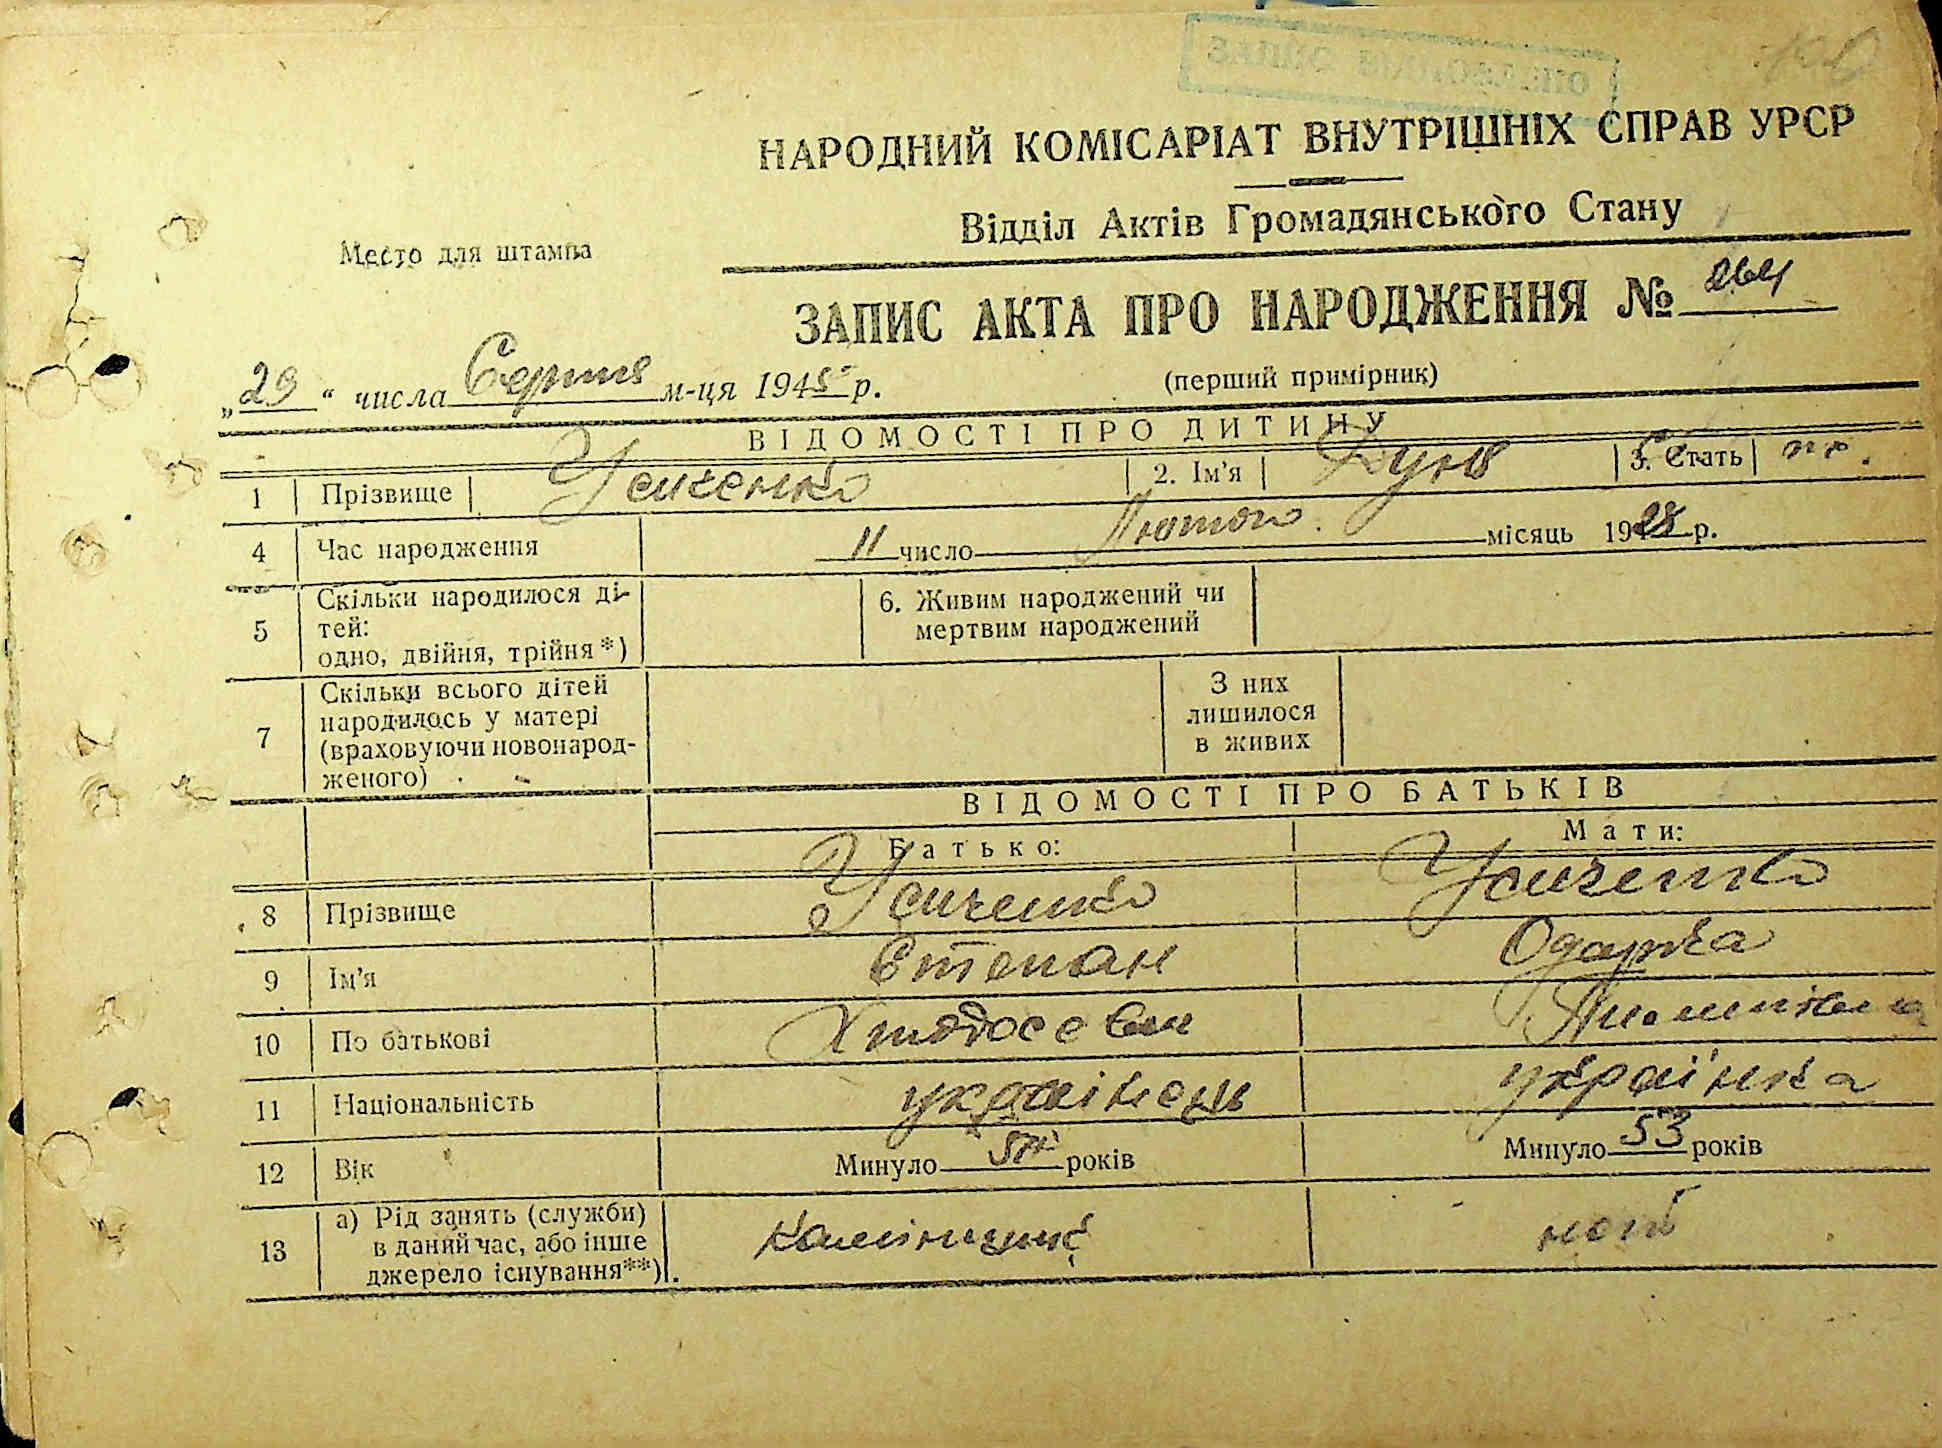 НАРОДНИЙ КОМІСАРІАТ ВНУТРІШНІХ СПРАВ УРСР
Відділ Актів Громадянського Стану
Место для штампа
ЗАПИС АКТА ПРО НАРОДЖЕННЯ № 264
„29“ числа Серпня м-ця 1945 р.
(перший примірник)
ВІДОМОСТІ ПРО ДИТИНУ
1 Прізвище Усиченко 2. Ім'я 3. Стать
4 Час народження 11 число Лютого місяць 1928 р.
5 Скільки народилося ді-
тей:
одно, двійня, трійня*)
6. Живим народжений чи
мертвим народжений
7 Скільки всього дітей
народилось у матері
(враховуючи новонарод-
женого)
З них
лишилося
в живих
ВІДОМОСТІ ПРО БАТЬКІВ
Батько: Мати:
8 Прізвище Усиченко Усиченко
9 Ім'я Степан Одарка
10 По батькові
11 Національність українець українка
12 Вік Минуло років Минуло 53 років
13 а) Рід занять (служби)
в даний час, або інше
джерело існування**).